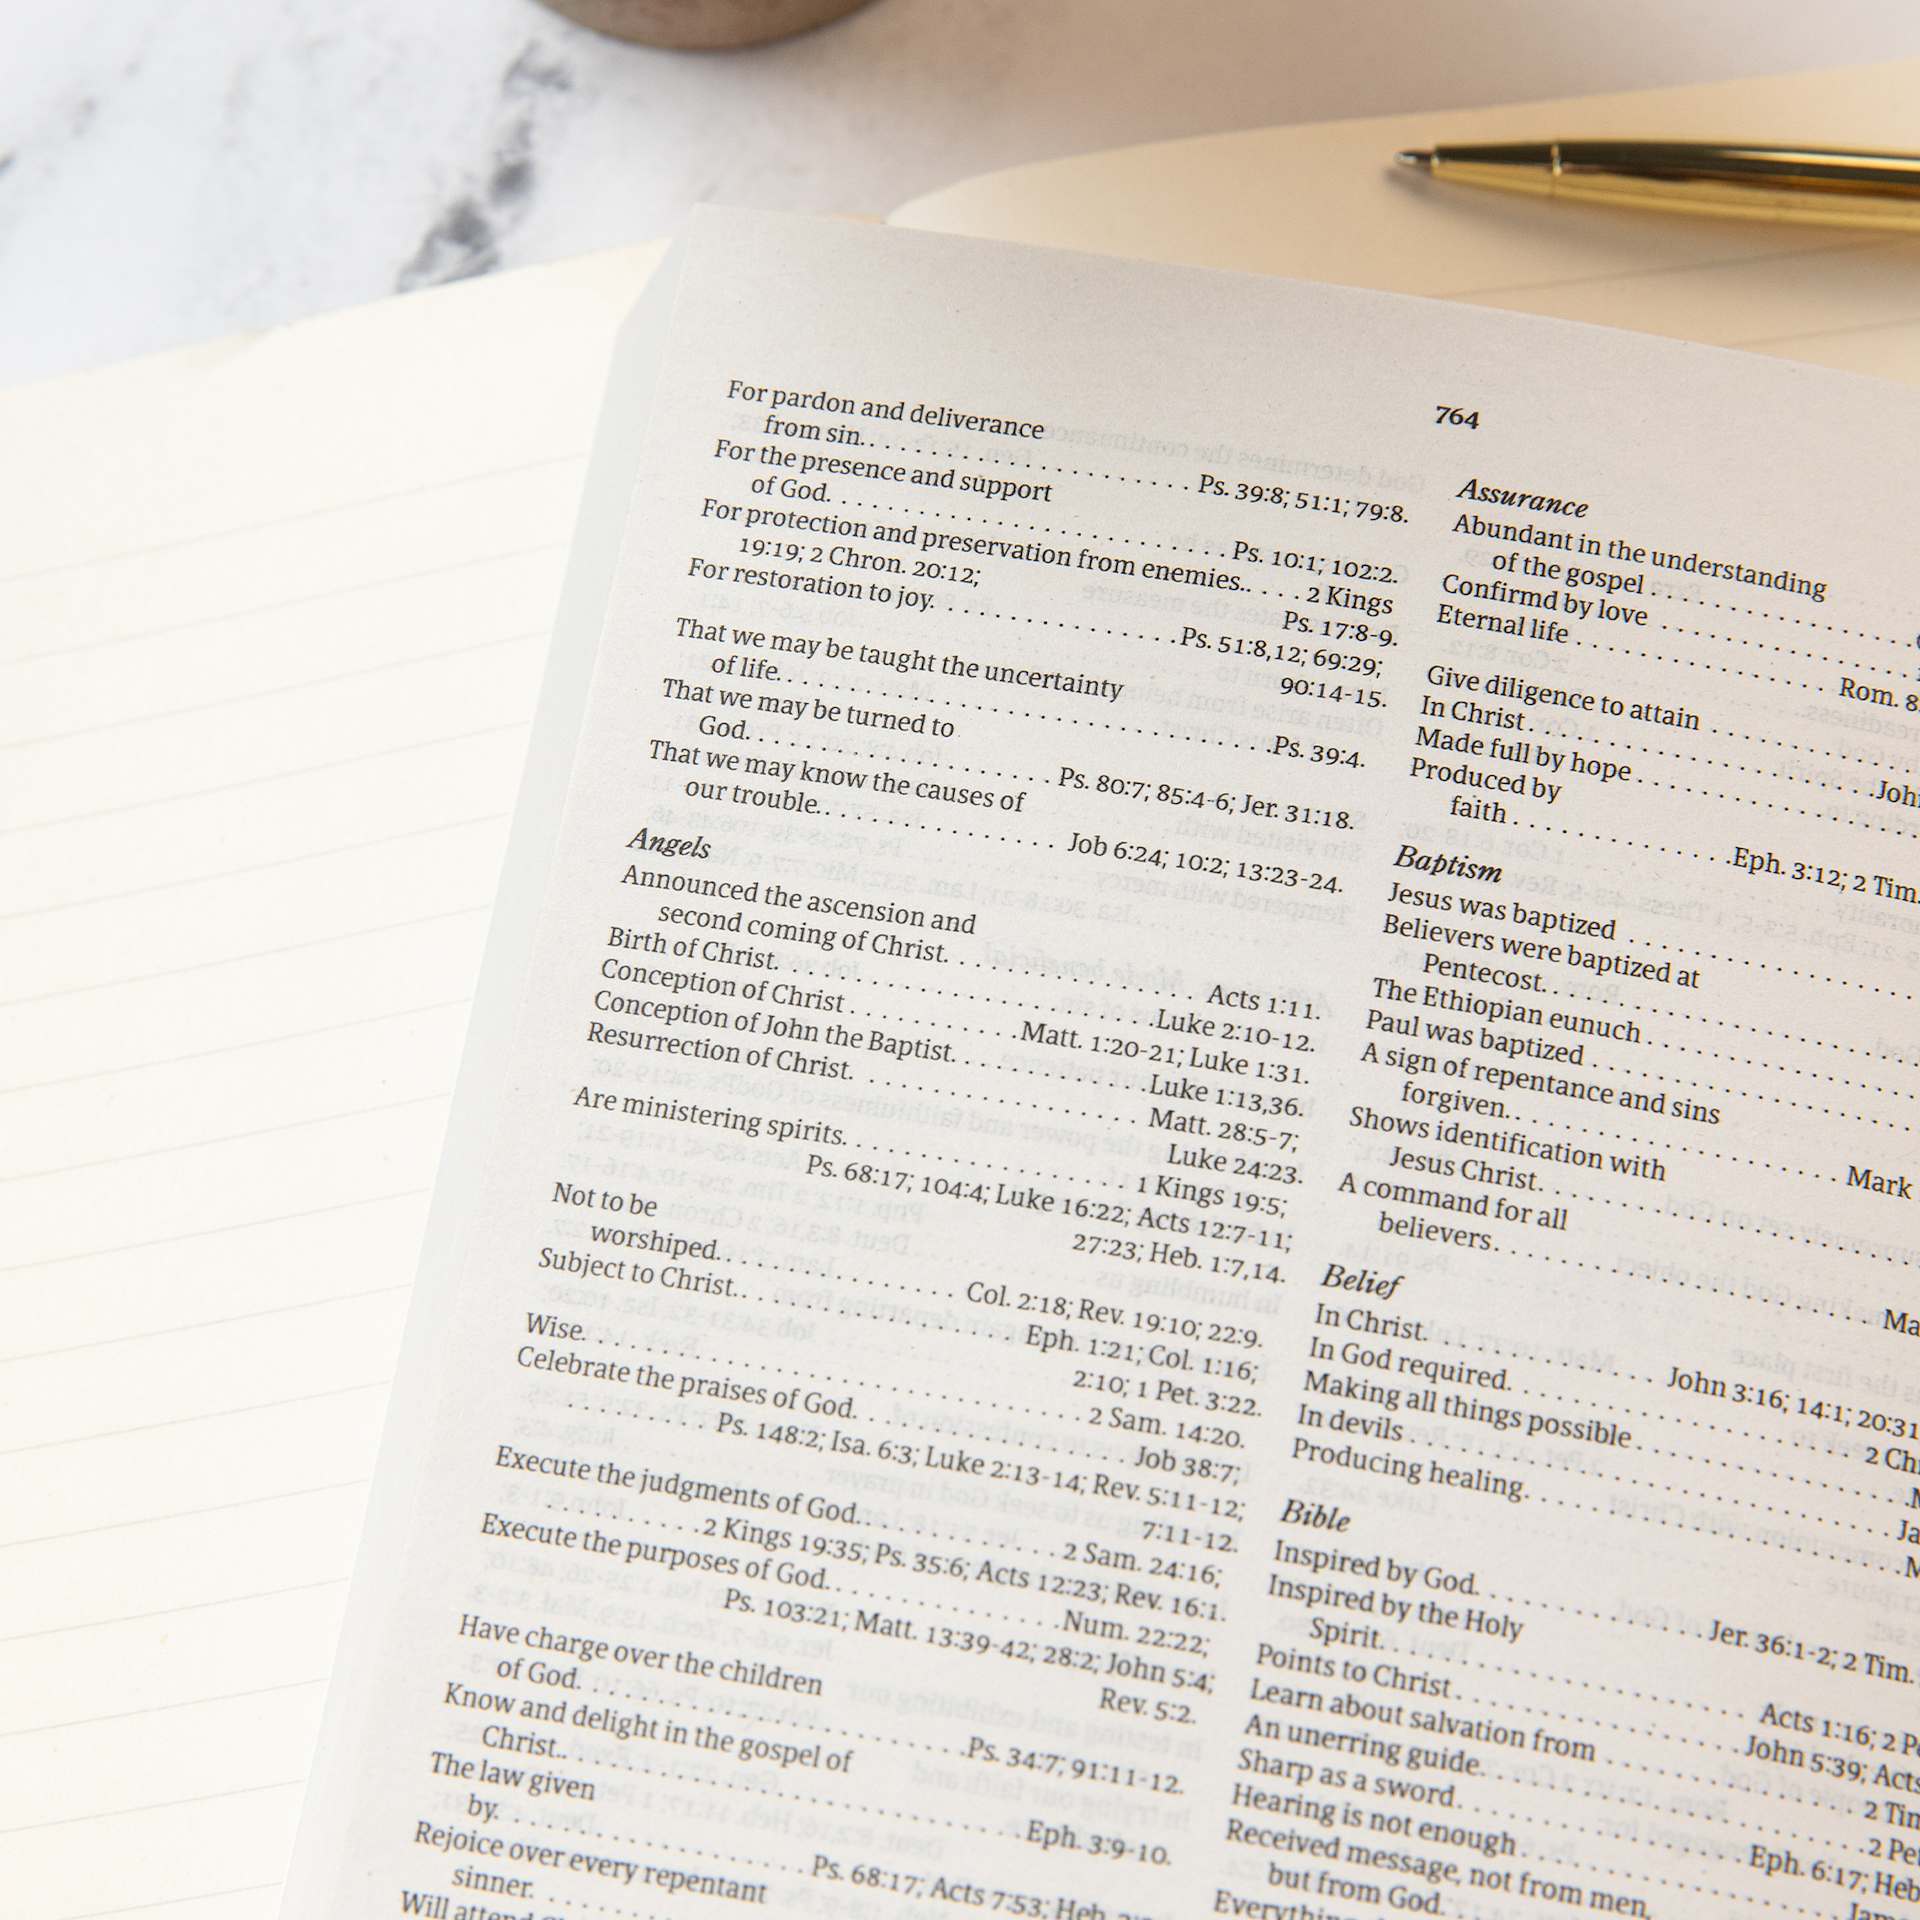 764
For pardon and deliverance
from sin.. . . . . . . . . . . . . . . . . . . . Ps. 39:8; 51:1; 79:8.
For the presence and support
of God. . . . . . . . . . . . . . . . . . . . . . . . Ps. 10:1; 102:2.
For protection and preservation from enemies.. . . . . 2 Kings
19:19; 2 Chron. 20:12;
Ps. 17:8-9.
For restoration to joy. . . . . . . . . . . . . . . Ps. 51:8,12; 69:29;
90:14-15.
That we may be taught the uncertainty
of life. . . . . . . . . . . . . . . . . . . . . . . . . . . . . . .Ps. 39:4.
That we may be turned to
God. . . . . . . . . . . . . . . . . . . Ps. 80:7; 85:4-6; Jer. 31:18.
That we may know the causes of
our trouble.. . . . . . . . . . . . . . . Job 6:24; 10:2; 13:23-24.
Angels
Announced the ascension and
second coming of Christ. . . . . . . . . . . . . . . . Acts 1:11.
Birth of Christ. . . . . . . . . . . . . . . . . . . . . . . .Luke 2:10-12.
Conception of Christ . . . . . . . . . . .Matt. 1:20-21; Luke 1:31.
Conception of John the Baptist. . . . . . . . . . . .Luke 1:13,36.
Resurrection of Christ. . . . . . . . . . . . . . . . . . Matt. 28:5-7;
Luke 24:23.
Are ministering spirits. . . . . . . . . . . . . . . . . . 1 Kings 19:5;
Ps. 68:17; 104:4; Luke 16:22; Acts 12:7-11;
27:23; Heb. 1:7,14.
Not to be
worshiped.. . . . . . . . . . . . . . . Col. 2:18; Rev. 19:10; 22:9.
Subject to Christ.. . . . . . . . . . . . . . . . . Eph. 1:21; Col. 1:16;
2:10; 1 Pet. 3:22.
Wise. . . . . . . . . . . . . . . . . . . . . . . . . . . . . . . 2 Sam. 14:20.
Celebrate the praises of God. . . . . . . . . . . . . . . . . Job 38:7;
. . . . . . . . . . Ps. 148:2; Isa. 6:3; Luke 2:13-14; Rev. 5:11-12;
7:11-12.
Execute the judgments of God.. . . . . . . . . . . . 2 Sam. 24:16;
. . . . . . . . . .2 Kings 19:35; Ps. 35:6; Acts 12:23; Rev. 16:1.
Execute the purposes of God. . . . . . . . . . . . . .Num. 22:22;
Ps. 103:21; Matt. 13:39-42; 28:2; John 5:4;
Rev. 5:2.
Have charge over the children
of God. . . . . . . . . . . . . . . . . . . . . . . . .Ps. 34:7; 91:11-12.
Know and delight in the gospel of
Christ.. . . . . . . . . . . . . . . . . . . . . . . . . . . . Eph. 3:9-10.
The law given
by. . . . . . . . . . . . . . . . . . . . Ps. 68:17; Acts 7:53; Heb.
Rejoice over every repentant
sinner. . . . . . . .
Will
Assurance
Abundant in the understanding
of the gospel . . . . . . . . . . . . . . .
Confirmd by love . . . . . . . . . . . . . . .
Eternal life . . . . . . . . . . . . . . . . . Rom. 8
Give diligence to attain . . . . . . . . .
In Christ. . . . . . . . . . . . . . . . . . . . .John
Made full by hope . . . . . . . . . . . . . . .
Produced by
faith . . . . . . . . . . . . . .Eph. 3:12; 2 Tim.
Baptism
Jesus was baptized . . . . . . . . . . . . . . .
Believers were baptized at
Pentecost.. . . . . . . . . . . . . . . . . . .
The Ethiopian eunuch . . . . . . . . . . . . . .
Paul was baptized . . . . . . . . . . . . . . .
A sign of repentance and sins
forgiven.. . . . . . . . . . . . . . . . . . Mark
Shows identification with
Jesus Christ. . . . . . . . . . . . . . . . . .
A command for all
believers. . . . . . . . . . . . . . . . . . . Ma
Belief
In Christ. . . . . . . . . . . . . John 3:16; 14:1; 20:31
In God required. . . . . . . . . . . . . . . . . 2 Ch
Making all things possible . . . . . . . . . . . . M
In devils . . . . . . . . . . . . . . . . . . . . . Ja
Producing healing. . . . . . . . . . . . . . . . . M
Bible
Inspired by God. . . . . . . . . . . .Jer. 36:1-2; 2 Tim.
Inspired by the Holy
Spirit. . . . . . . . . . . . . . . . . . Acts 1:16; 2 Pe
Points to Christ . . . . . . . . . . . . . . John 5:39; Acts
Learn about salvation from . . . . . . . . . . . 2 Tim
An unerring guide. . . . . . . . . . . . . . . . . .2 Pet
Sharp as a sword. . . . . . . . . . . . . Eph. 6:17; Heb
Hearing is not enough . . . . . . . . . . . . . . Jam
Received message, not from men,
but from God. . .
Everything